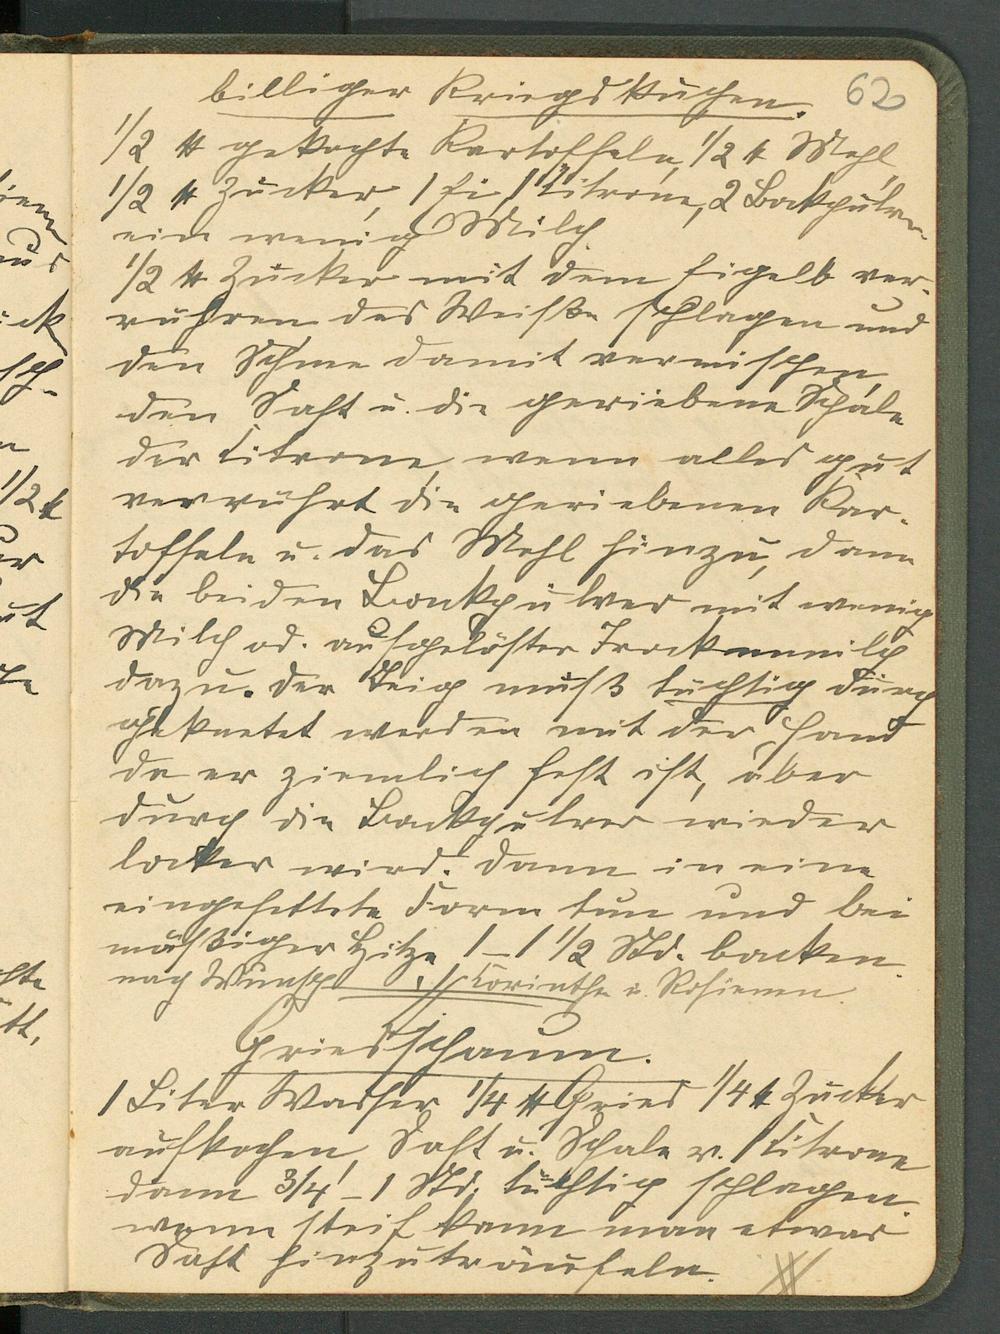 62
billiger Kriegskuchen.
1/2 ℔ gekochte Kartoffeln, 1/2 ℔ Mehl,
1/2 ℔ Zucker, 1 Ei, 1 Zitrone, 2 Backpulver
ein wenig Milch
1/2 ℔ Zucker mit dem Eigelb ver-
rühren das Weiße schlagen und
den Schnee damit vermischen,
den Saft u. die geriebene Schale
der Zitrone, wenn alles gut
verrührt die geriebenen Kar-
toffeln u. das Mehl hinzu, dann
die beiden Backpulver mit wenig
Milch od. aufgelöster Trockenmilch
dazu. Der Teig muß tüchtig durch
geknetet werden mit der Hand
da er ziemlich fest ist, aber
durch die Backpulver wieder
locker wird. Dann in eine
eingefettete Form tun und bei
mäßiger Hitze 1 – 1 1/2 Std. backen.
nach Wunsch Korinthe u. Rosienen.
Griesschaum.
1 Liter Wasser 1/4 ℔ Gries 1/4 ℔ Zucker
aufkochen, Saft u. Schale v. 1 Zitrone
dann 3/4 – 1 Std. tüchtig schlagen.
wenn steif kann man etwas
Saft hinzuträufeln.